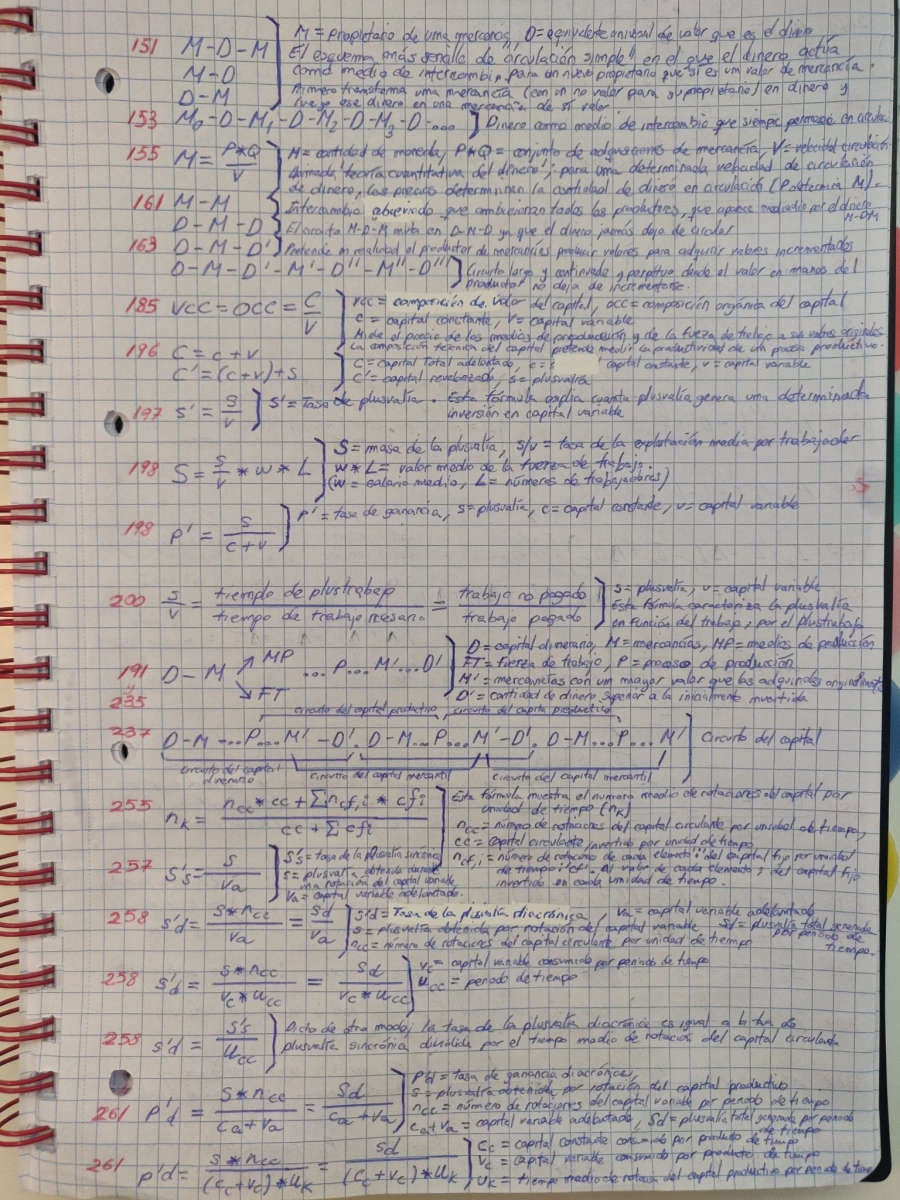 151 M-D-M M = propietario de una mercancía, D = equivalente universal de valor que es el dinero
El esquema más sencillo de "circulación simple" en el que el dinero actúa
M-D como medio de intercambio para un nuevo propietario que sí es un valor de mercancía.
D-M Primero transforma una mercancía (con un no valor para su propietario) en dinero y
luego ese dinero en una mercancía de sí valor
153 M₀-D-M₁-D-M₂-D-M₃-D-... Dinero como medio de intercambio que siempre permanece en circulación
155 M = P*Q / V M = cantidad de moneda, P*Q = conjunto de adquisiciones de mercancía, V = velocidad circulación
llamada "teoría cuantitativa del dinero"; para una determinada velocidad de circulación
de dinero, los precios determinan la cantidad de dinero en circulación (P determina M).
161 M-M Intercambio observado que ambicionan todos los productores, que aparece mediado por el dinero
M-D-M
D-M-D El circuito M-D-M muta en D-M-D ya que el dinero jamás deja de circular
163 D-M-D' Pretende en realidad el productor de mercancías producir valores para adquirir valores incrementados
D-M-D'-M'-D''-M''-D''' Circuito largo y continuado y perpetuo donde el valor en manos del
productor no deja de incrementarse.
185 VCC = OCC = C / V vcc = composición de valor del capital, occ = composición orgánica del capital
c = capital constante, v = capital variable
Mide el precio de los medios de producción y de la fuerza de trabajo a sus valores originales
La composición técnica del capital pretende medir la productividad de un proceso productivo.
196 C = c + v C = capital total adelantado, c = capital constante, v = capital variable
C' = (c+v)+s C' = capital revalorizado, s = plusvalía
197 s' = s / v s' = Tasa de plusvalía. Esta fórmula explica cuanta plusvalía genera una determinada
inversión en capital variable
198 S = s / v * w * L S = masa de la plusvalía, s/v = tasa de la explotación media por trabajador
w * L = valor medio de la fuerza de trabajo.
(w = salario medio, L = números de trabajadores)
198 p' = s / c+v p' = tasa de ganancia, s = plusvalía, c = capital constante, v = capital variable
200 s / v = tiempo de plustrabajo / tiempo de trabajo necesario = trabajo no pagado / trabajo pagado s = plusvalía, v = capital variable
Esta fórmula caracteriza la plusvalía
en función del trabajo, por el plustrabajo
191 y 235 D-M MP FT ...P...M'...D' D = capital dinerario, M = mercancías, MP = medios de producción
FT = fuerza de trabajo, P = proceso de producción
M' = mercancías con un mayor valor que las adquiridas originalmente
D' = cantidad de dinero superior a la inicialmente invertida
circuito del capital productivo circuito del capital productivo
237 D-M...P...M'-D'. D-M...P...M'-D'. D-M...P...M' Circuito del capital
circuito del capital dinerario circuito del capital mercantil circuito del capital mercantil
255 nₖ = n_cc * cc + Σ n_cf,i * cfi / cc + Σ cfi Esta fórmula muestra el número medio de rotaciones del capital por
unidad de tiempo (nₖ)
n_cc = número de rotaciones del capital circulante por unidad de tiempo,
cc = capital circulante invertido por unidad de tiempo
n_cf,i = número de rotaciones de cada elemento "i" del capital fijo por unidad
de tiempo; cfi = el valor de cada elemento i del capital fijo
invertido en cada unidad de tiempo.
257 s's = s / va s's = tasa de la plusvalía sincrónica
s = plusvalía obtenida durante
una rotación del capital variable
va = capital variable adelantado.
258 s'd = s*n_cc / va = sd / va s'd = Tasa de la plusvalía diacrónica, va = capital variable adelantado
s = plusvalía obtenida por rotación del capital variable sd = plusvalía total generada
por periodo de
tiempo.
n_cc = número de rotaciones del capital circulante por unidad de tiempo
258 s'd = s*n_cc / vc*u_cc = sd / vc*u_cc vc = capital variable consumido por periodo de tiempo
u_cc = periodo de tiempo
258 s'd = s's / u_cc Dicho de otro modo, la tasa de la plusvalía diacrónica es igual a la tasa de
plusvalía sincrónica dividida por el tiempo medio de rotación del capital circulante
261 p'd = s*n_cc / ca+va = sd / ca+va p'd = tasa de ganancia diacrónica,
s = plusvalía obtenida por rotación del capital productivo
n_cc = número de rotaciones del capital variable por periodo de tiempo
ca+va = capital variable adelantado, sd = plusvalía total generada por periodo
de tiempo
261 p'd = s*n_cc / (cc+vc)*uₖ = sd / (cc+vc)*uₖ cc = capital constante consumido por producto de tiempo
vc = capital variable consumido por producto de tiempo
uₖ = tiempo medio de rotación del capital productivo por periodo de tiempo